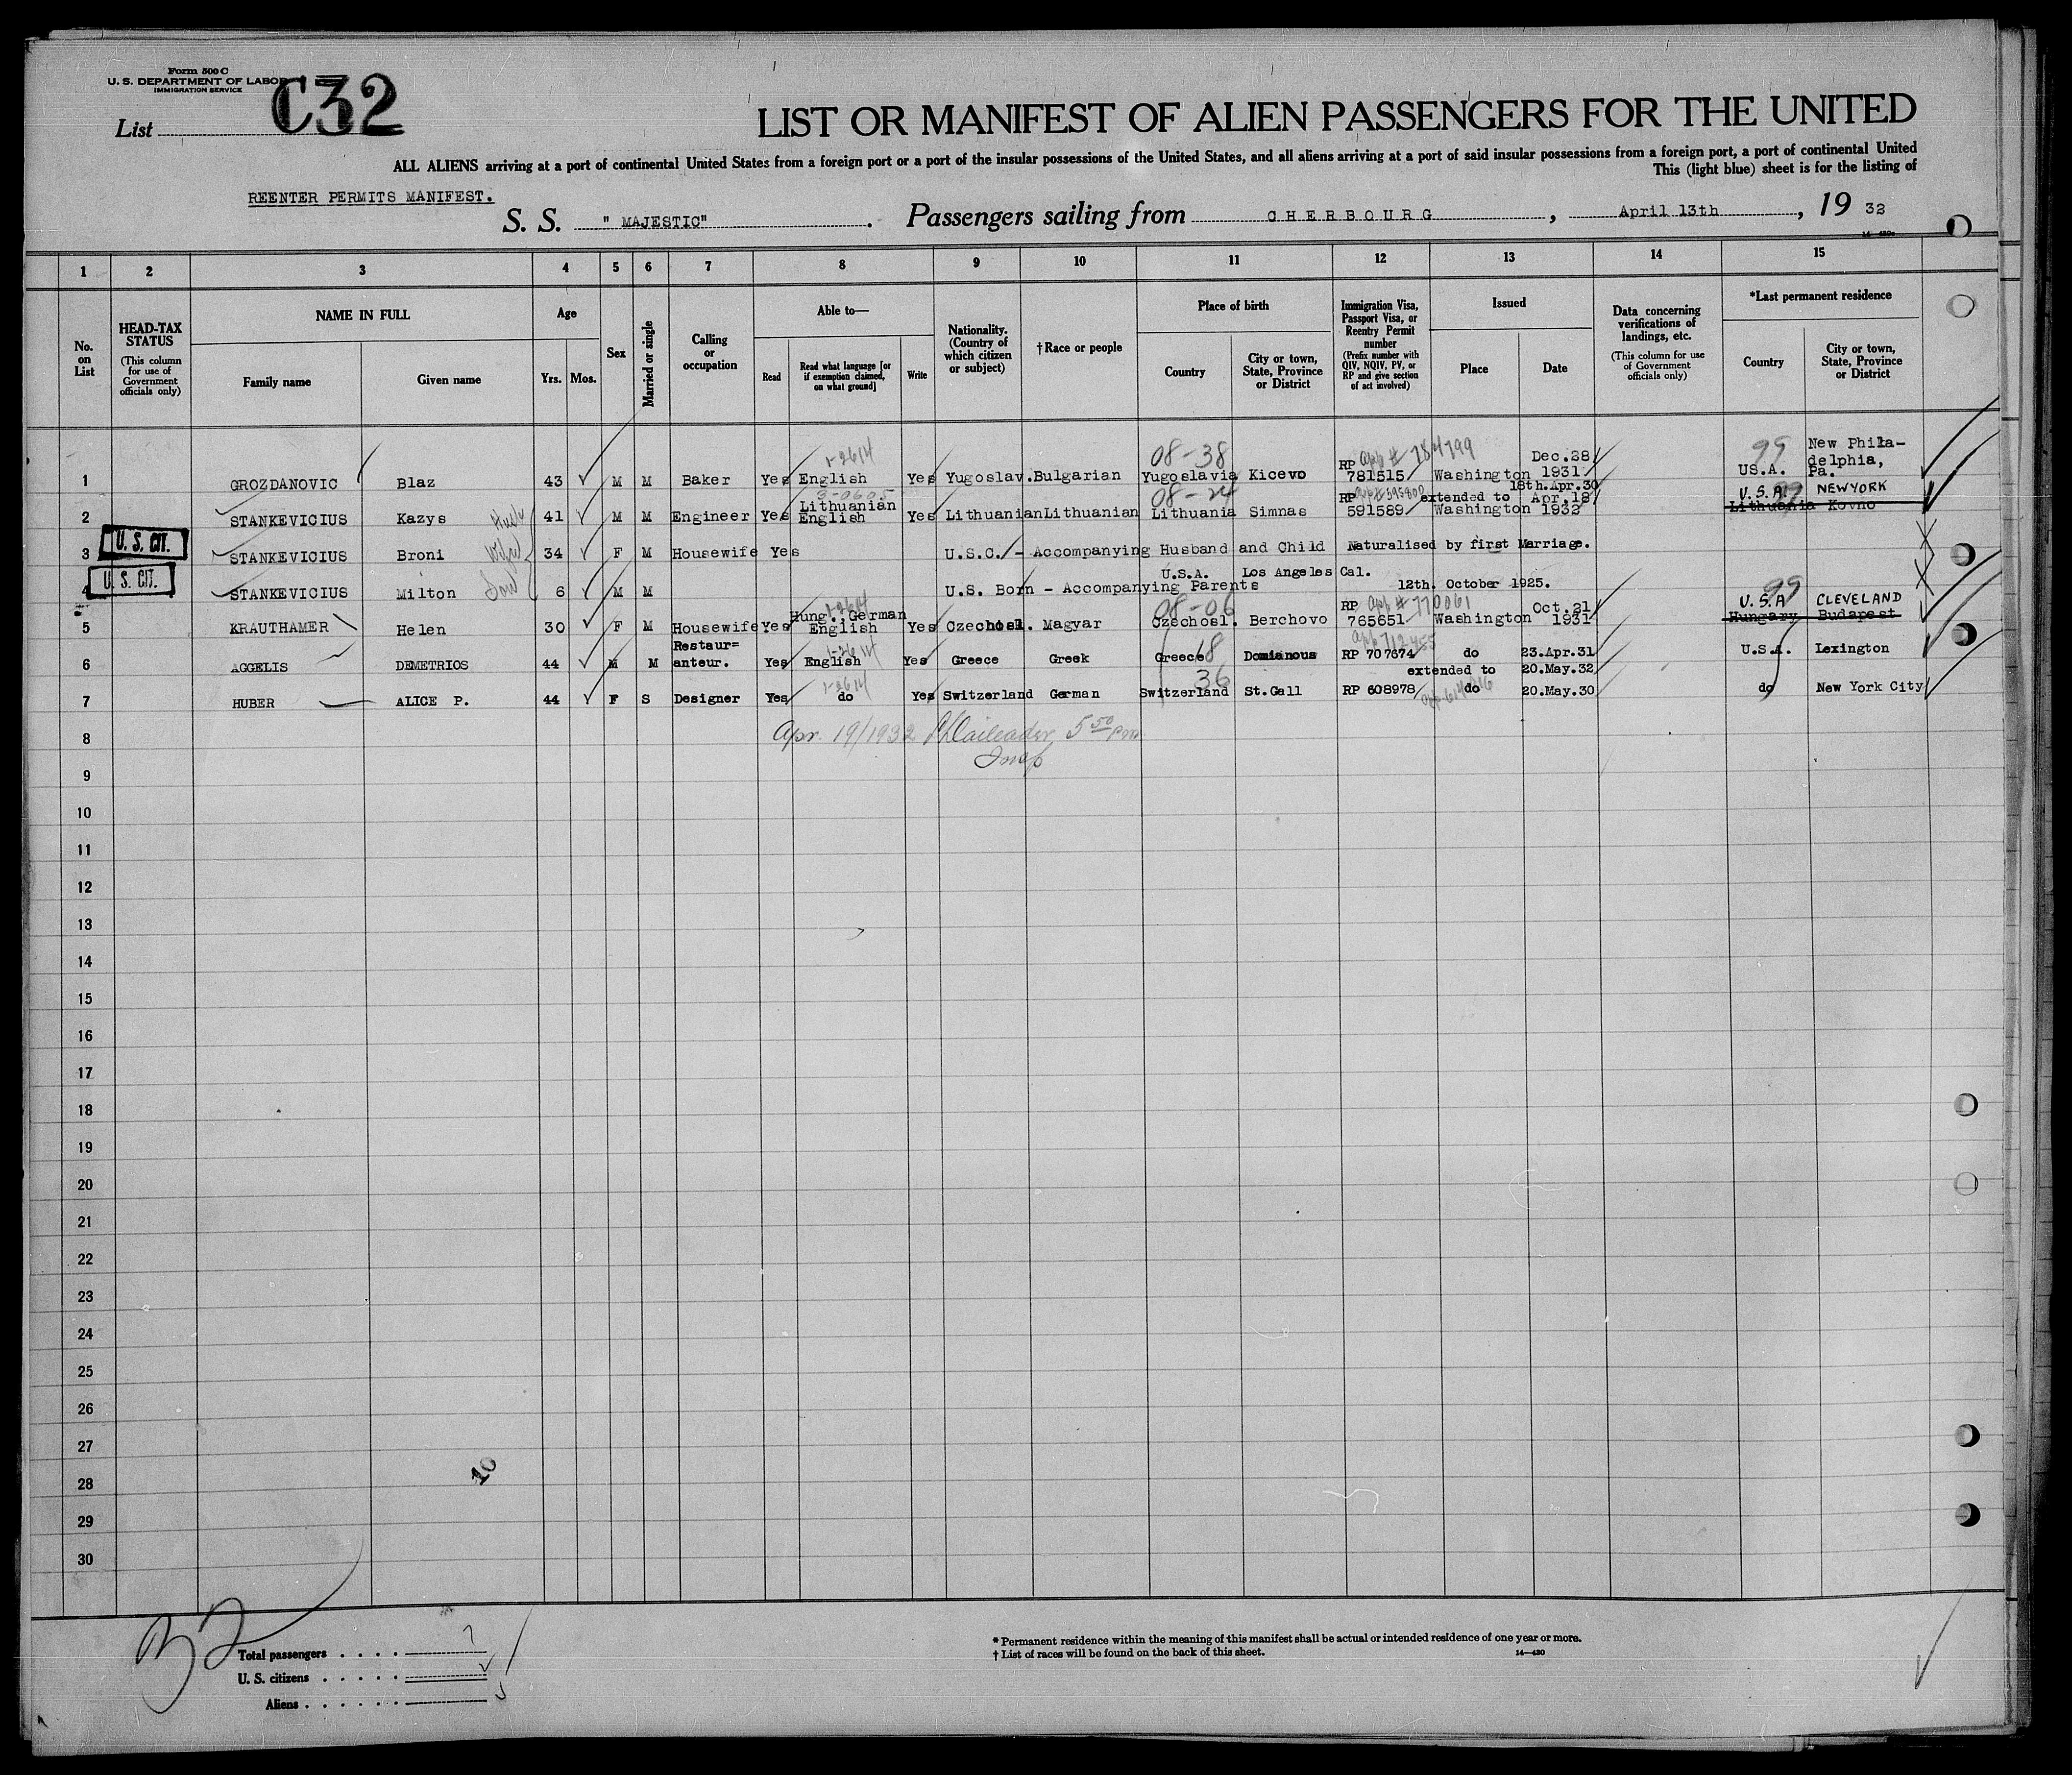 Form 500 C
U. S. DEPARTMENT OF LABOR
IMMIGRATION SERVICE
List C32
LIST OR MANIFEST OF ALIEN PASSENGERS FOR THE UNITED
ALL ALIENS arriving at a port of continental United States from a foreign port or a port of the insular possessions of the United States, and all aliens arriving at a port of said insular possessions from a foreign port, a port of continental United
This (light blue) sheet is for the listing of
REENTER PERMITS MANIFEST.
S. S. " MAJESTIC". Passengers sailing from CHERBOURG, April 13th, 19 32
14—430a
1 2 3 4 5 6 7 8 9 10 11 12 13 14 15
No. on List
HEAD-TAX STATUS (This column for use of Government officials only)
NAME IN FULL
Family name
Given name
Age
Yrs. Mos.
Sex
Married or single
Calling or occupation
Able to—
Read
Read what language [or if exemption claimed, on what ground]
Write
Nationality. (Country of which citizen or subject)
†Race or people
Place of birth
Country
City or town, State, Province or District
Immigration Visa, Passport Visa, or Reentry Permit number (Prefix number with QIV, NQIV, PV, or RP and give section of act involved)
Issued
Place
Date
Data concerning verifications of landings, etc. (This column for use of Government officials only)
*Last permanent residence
Country
City or town, State, Province or District
1-2614 08-38 RP app # 784799 Dec.28 99 New Phila-delphia,
1 GROZDANOVIC Blaz 43 M M Baker Yes English Yes Yugoslav. Bulgarian Yugoslavia Kicevo 781515 Washington 1931 US.A. Pa.
3-0605 Lithuanian 08-24 RP extended to 18th.Apr.30 Apr.18 U.S.A. NEWYORK
2 STANKEVICIUS Kazys 41 M M Engineer Yes English Yes Lithuanian Lithuanian Lithuania Simnas 591589 Washington 1932 Lithuania Kovno
U. S. CIT.
3 STANKEVICIUS Broni Wife 34 F M Housewife Yes U.S.C. - Accompanying Husband and Child Naturalised by first Marriage.
U. S. CIT.
U.S.A. Los Angeles Cal.
4 STANKEVICIUS Milton Son 6 M M U.S. Born - Accompanying Parents 12th. October 1925.
Hung., German 1-2614 08-06 RP app # 770061 Oct.21 99 U.S.A CLEVELAND
5 KRAUTHAMER Helen 30 F M Housewife Yes English Yes Czechosl. Magyar Czechosl. Berchovo 765651 Washington 1931 Hungary Budapest
Restaur= 1-2614
6 AGGELIS DEMETRIOS 44 M M anteur. Yes English Yes Greece Greek Greece 18 Domianous RP 707674 do 23.Apr.31 U.S.A. Lexington
extended to 20.May.32
1-2614 36
7 HUBER ALICE P. 44 F S Designer Yes do Yes Switzerland German Switzerland St.Gall RP 608978 do 20.May.30 do New York City
8 Apr. 19/1932 5 50 pm
Insp
9
10
11
12
13
14
15
16
17
18
19
20
21
22
23
24
25
26
27
28 10
29
30
Total passengers 7
U. S. citizens
Aliens 5
* Permanent residence within the meaning of this manifest shall be actual or intended residence of one year or more.
† List of races will be found on the back of this sheet.
14—430